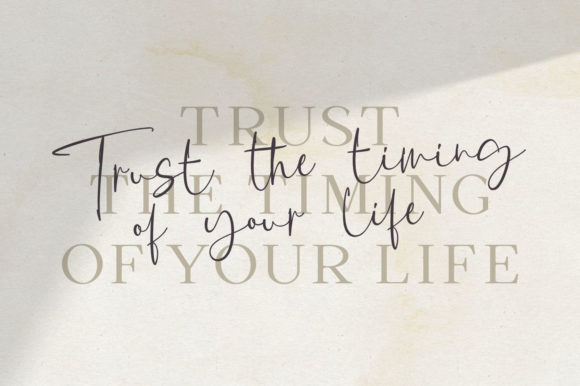 TRUST
THE TIMING
OF YOUR LIFE
Trust the timing
of your life